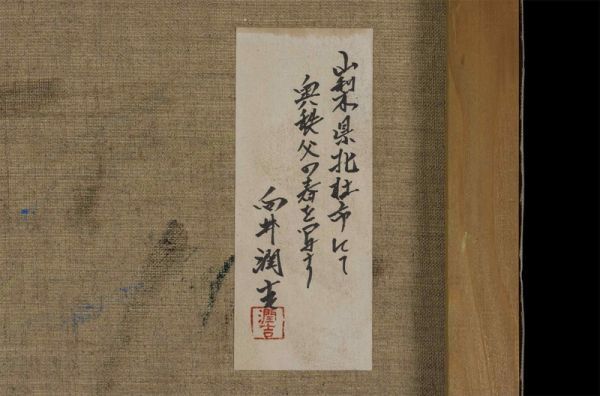 山梨県北杜市にて
奥秩父の春を写す
向井潤吉
潤吉